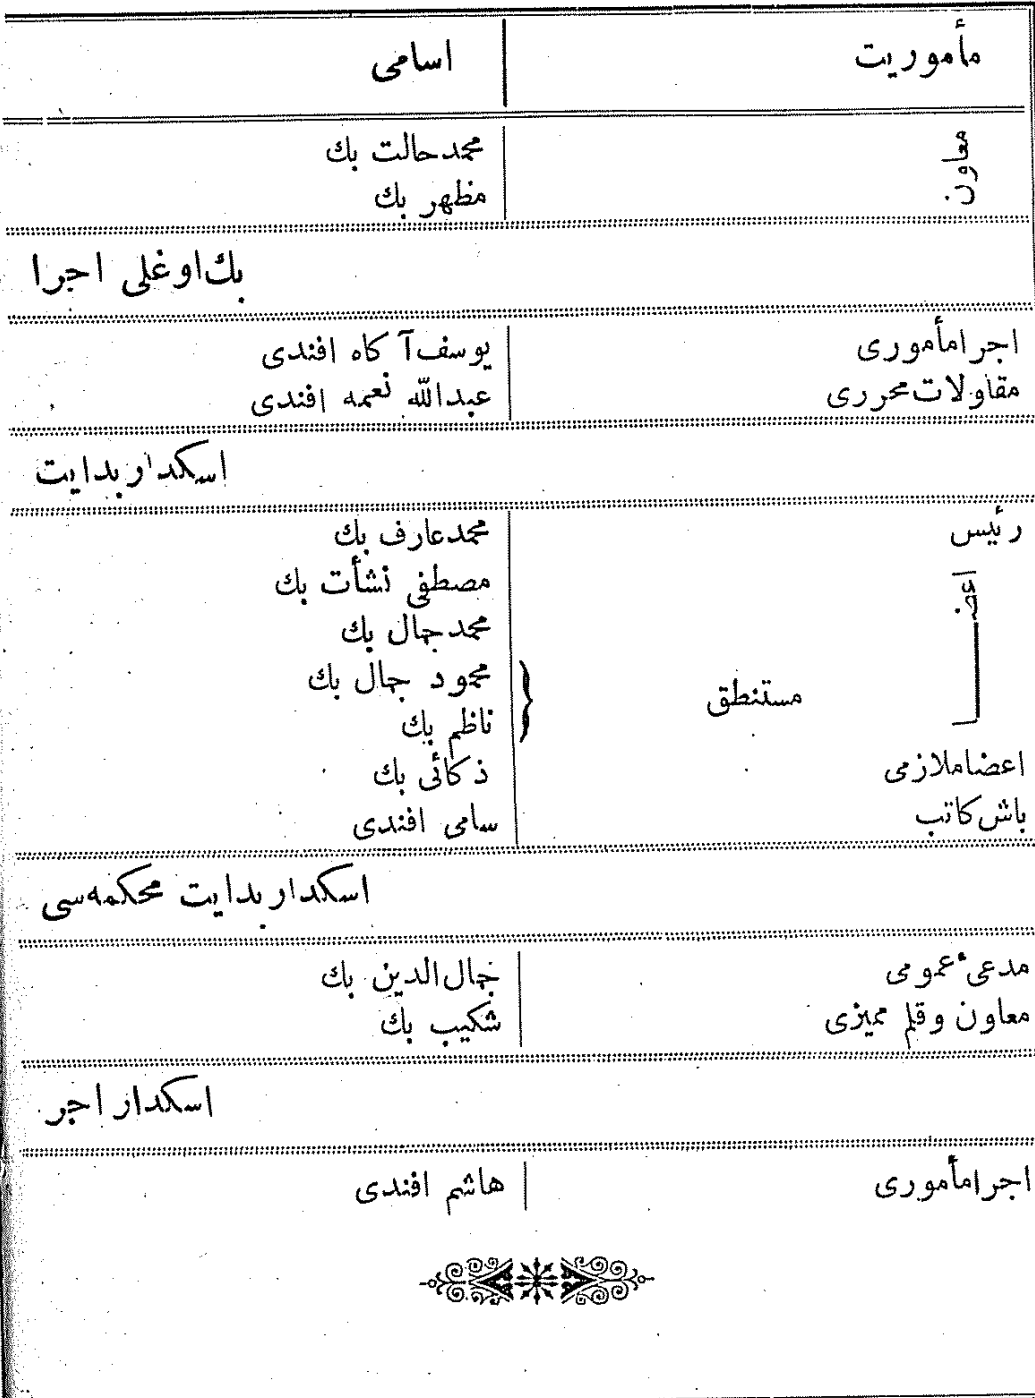 مأموریت اسامی
معاون محمد حالت بك
مظهر بك
بك اوغلی اجرا
اجرا مأموری یوسف آكاه افندی
مقاولات محرری عبدالله نعمه افندی
اسكدار بدایت
رئیس محمد عارف بك
اعضا مصطفی نشأت بك
محمد جمال بك
مستنطق محمود جمال بك
ناظم بك
اعضا ملازمی ذكائی بك
باش كاتب سامی افندی
اسكدار بدایت محكمه‌سی
مدعیٔ عمومی جمال‌الدین بك
معاون وقلم ممیزی شكیب بك
اسكدار اجر
اجرا مأموری هاشم افندی